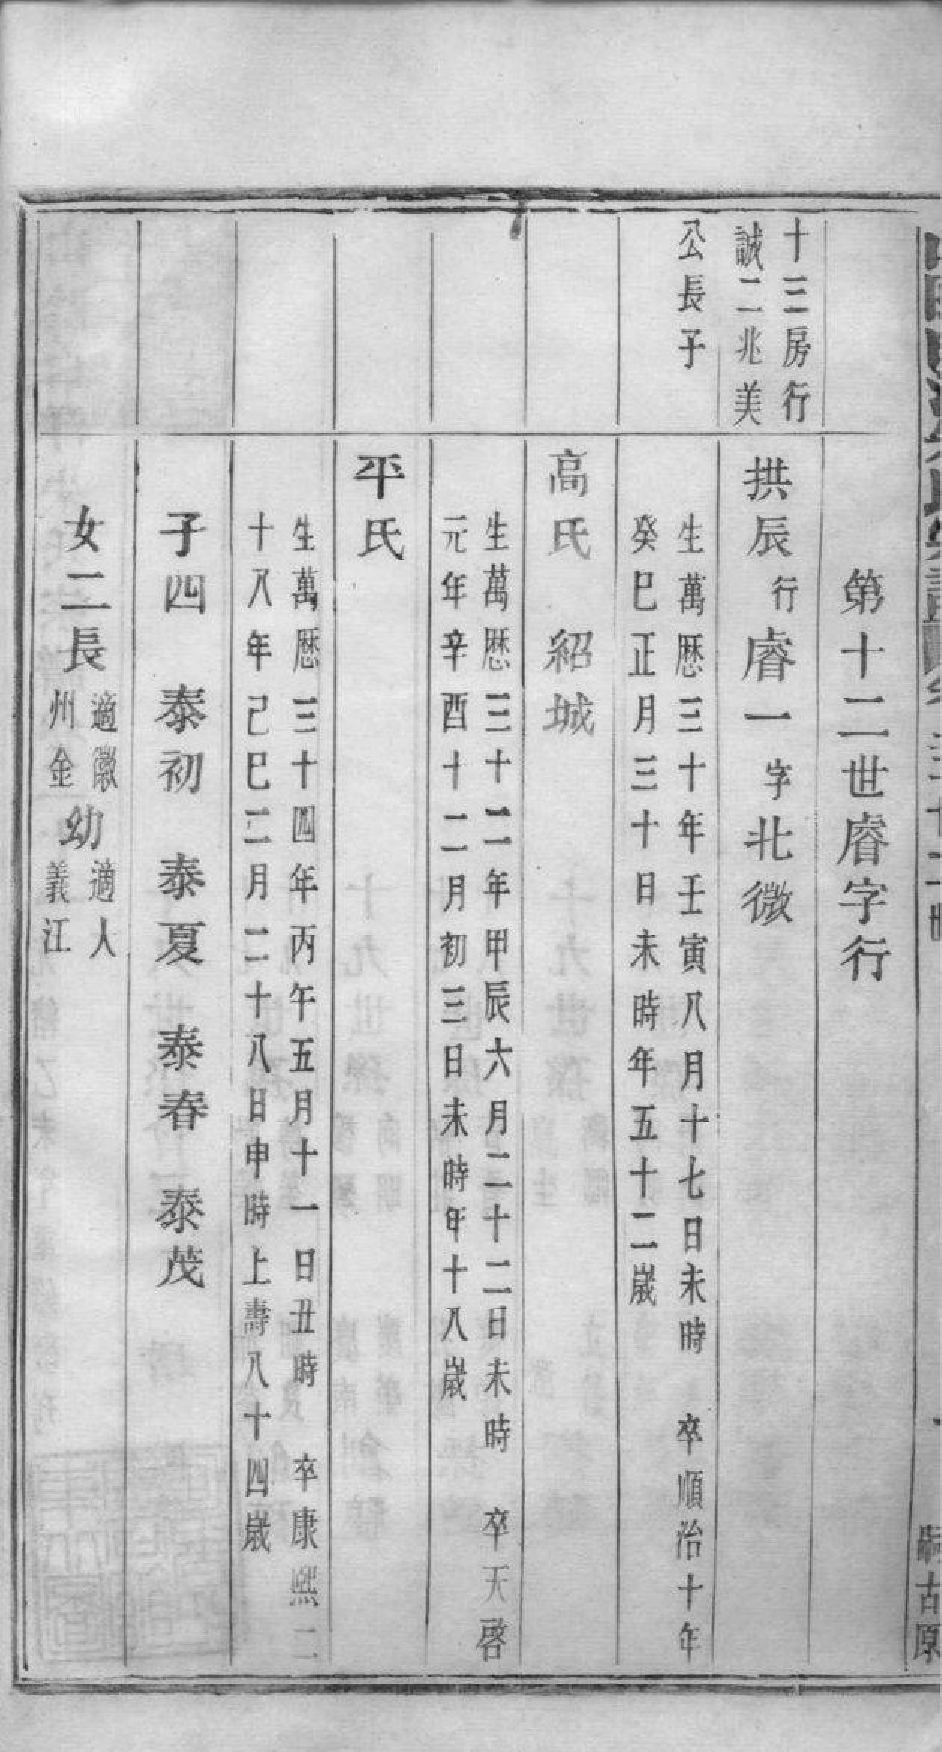 第十二世睿字行
十三房行
誠二兆美
公長子
拱辰行睿一字北微
生萬歷三十年壬寅八月十七日未時 卒順治十年
癸巳正月三十日未時年五十二歲
高氏 紹城
生萬歷三十二年甲辰六月二十二日未時 卒天啓
元年辛酉十二月初三日未時年十八歲
平氏
生萬歷三十四年丙午五月十一日丑時 卒康熙二
十八年己巳二月二十八日申時上壽八十四歲
子四 泰初 泰夏 泰春 泰茂
女二長適徽州金幼適人義江